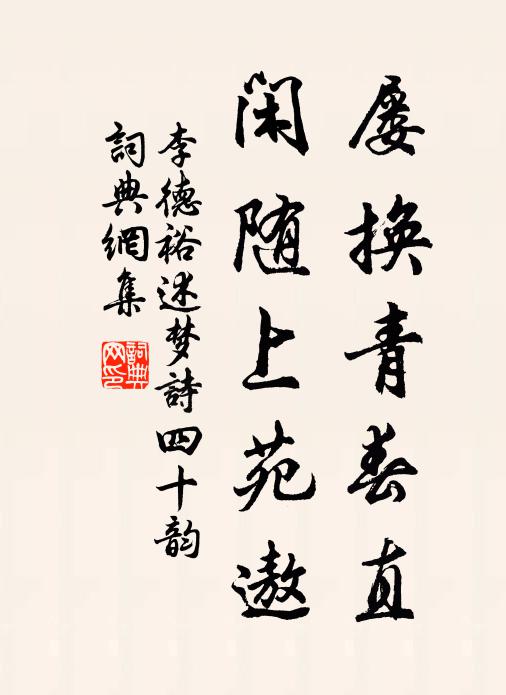 屡换青春直
闲随上苑遨
李德裕述梦詩四十韵
詞典網集
詞典網印